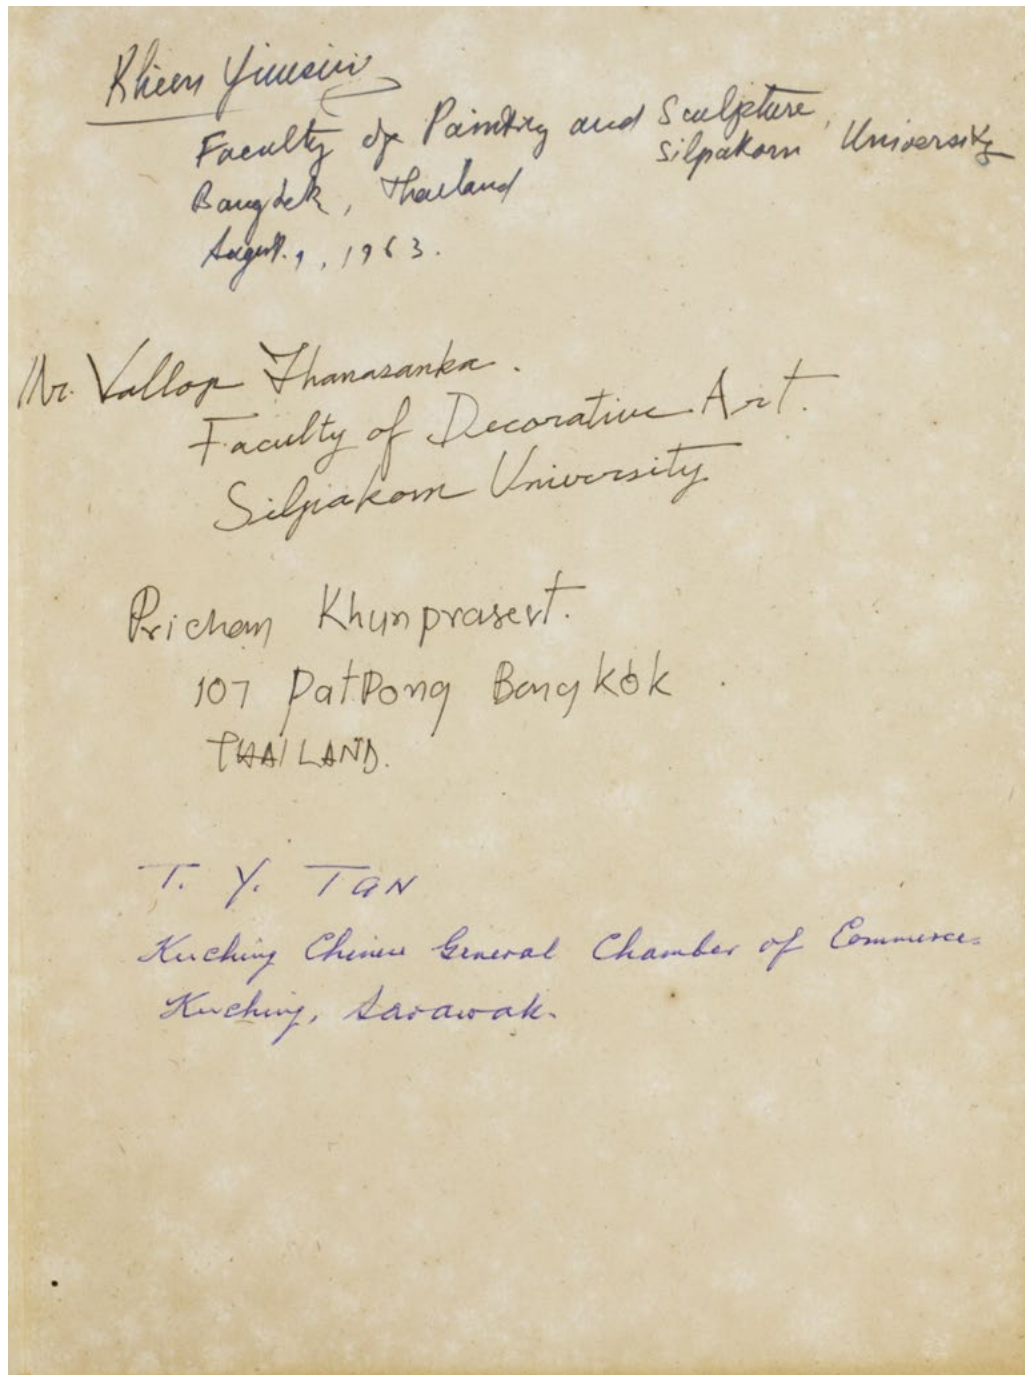 Khien Yimsiri
Faculty of Painting and Sculpture,
Silpakorn University
Bangkok, Thailand
August. 9, 1963.
Mr. Vallop Thanasanka.
Faculty of Decorative Art.
Silpakorn University
Prichan Khunprasert.
107 PatPong Bangkok
THAILAND.
T. Y. TAN
Kuching Chinese General Chamber of Commerce
Kuching, Sarawak.